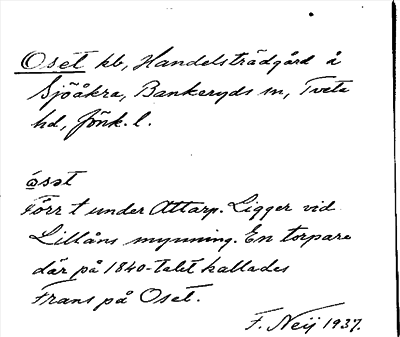 Oset kb, Handelsträdgård å
Sjöåkra, Bankeryds sn, Tveta
hd, Jönk. l.
ɷ́sət
Förr t under Attarp. Ligger vid
Lillåns mynning. En torpare
där på 1840-talet kallades
Frans på Oset.
F. Neij 1937.